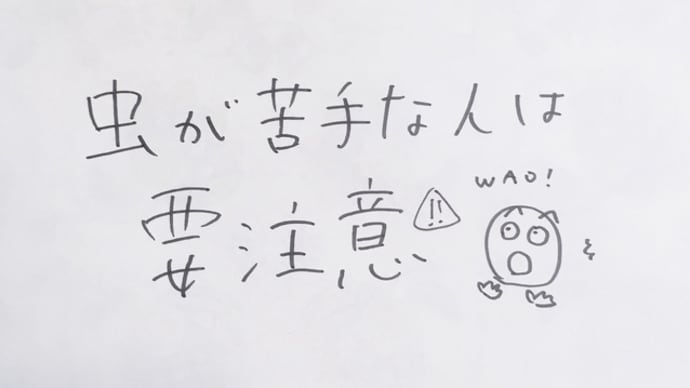 虫が苦手な人は
要注意 !!
WAO!